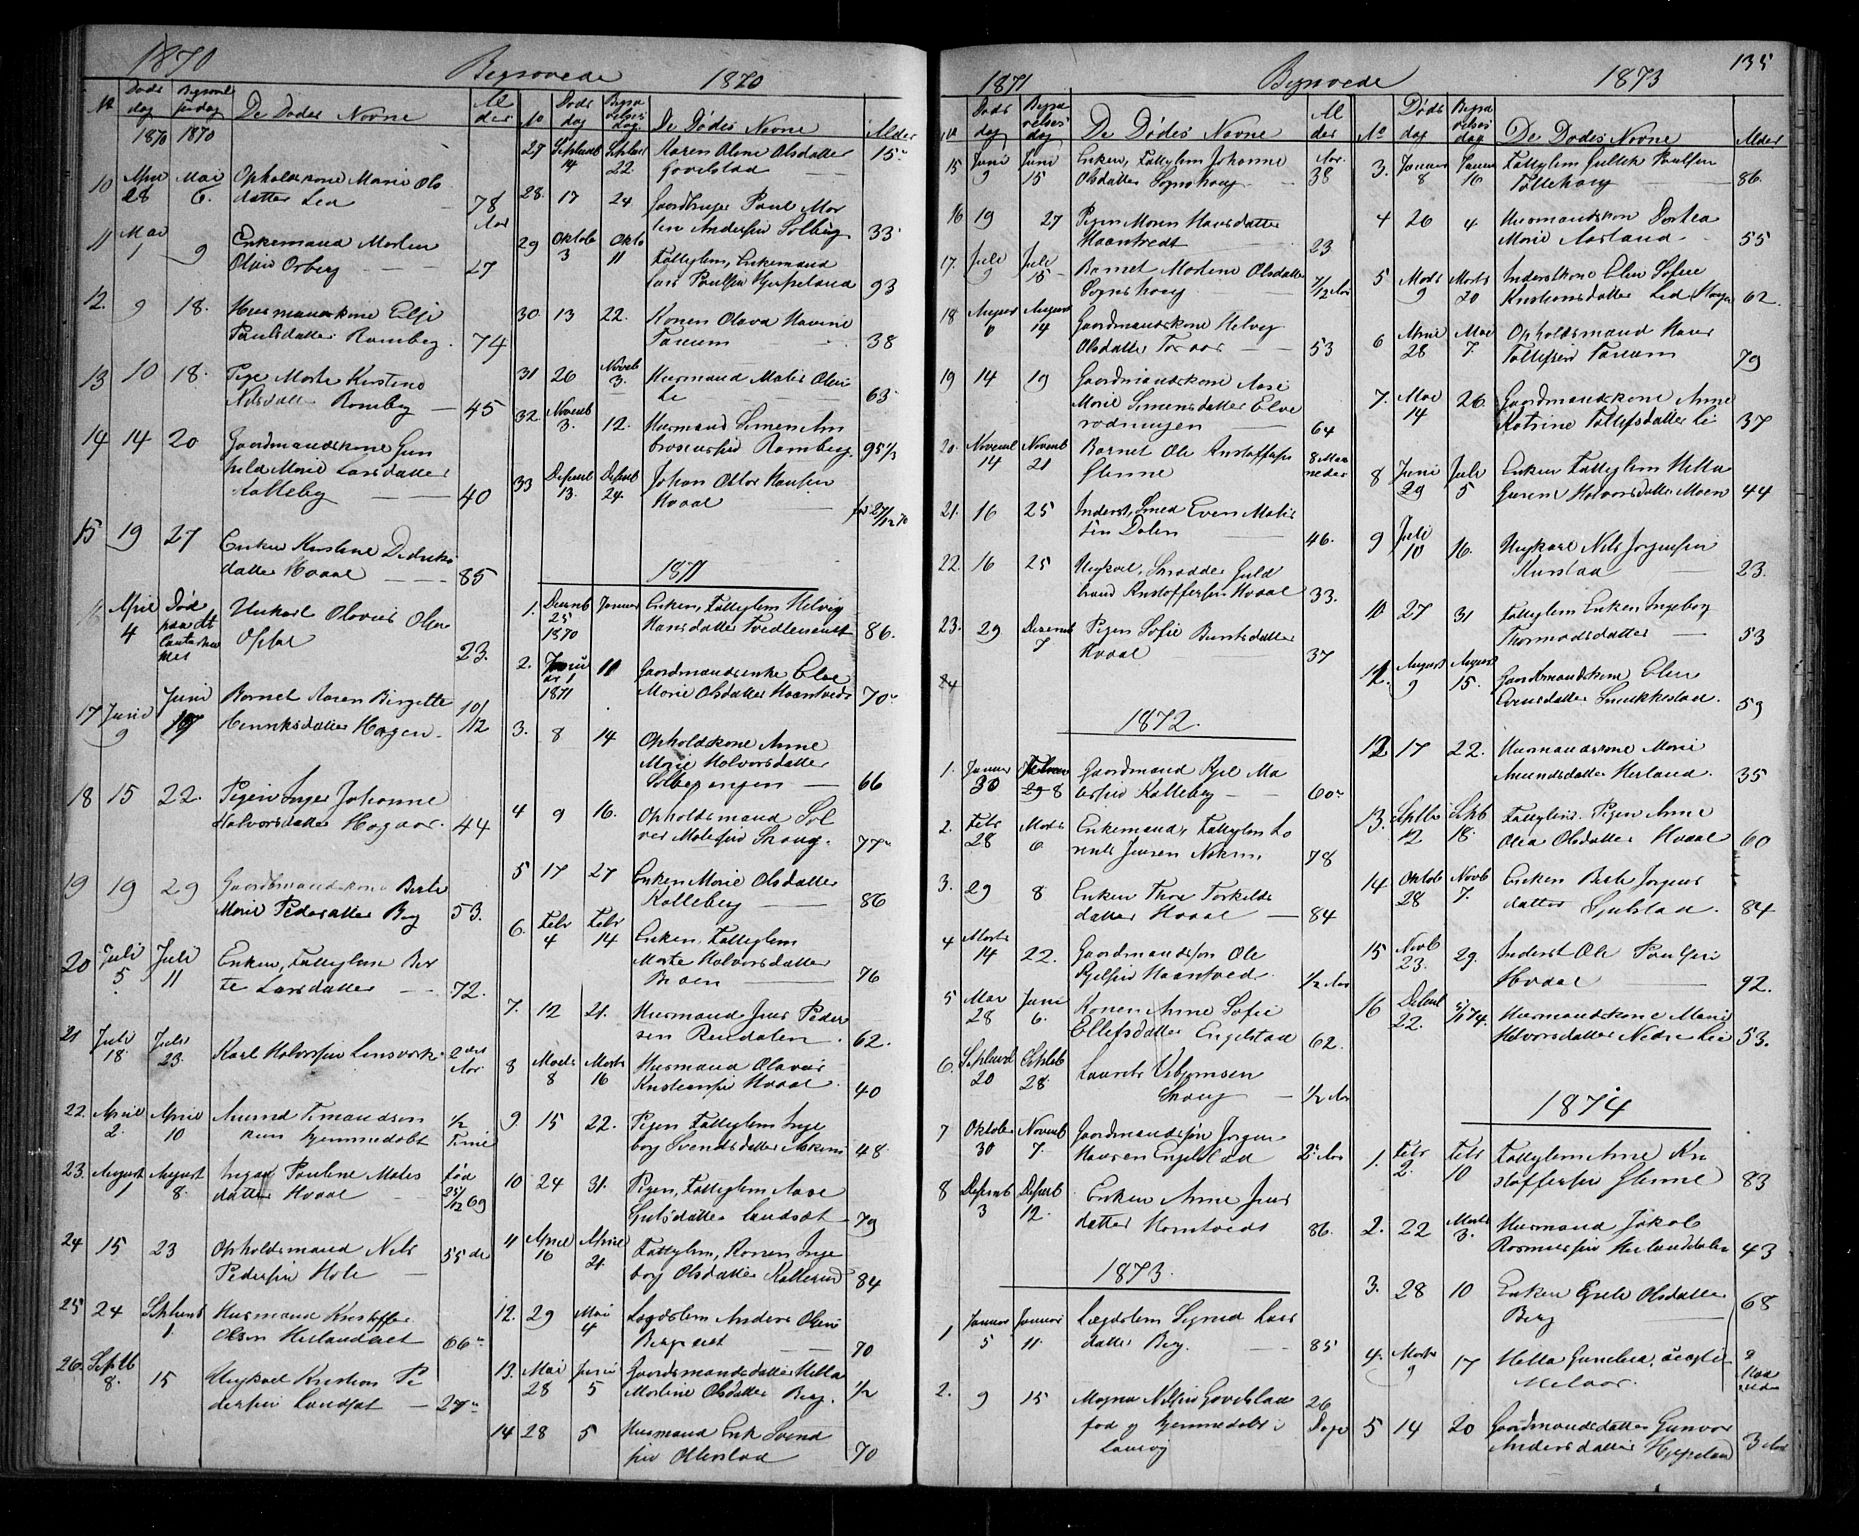 1870
Begravede
1870
No
Døds dag
Begravelsesdag
De Dødes Navne
Alder
1870 1870
10 April 28 Mai 6. Opholdskone Marie Ols
datter Lia 78 Aar
11 Mai 1 9 Enkemand Morten
Olsen Orberg 27
12. 9 18. Husmandskone Eli
Paulsdatter Ramberg. 74
13 10 18. Pige Marte Kirstine
Nilsdatt. Ramberg 45
14 14 20 Gaardmandskone Gun
hild Marie Larsdatter
Kalleberg 40
15 19 27 Enken Kirstine Didriks
datter Hvaal 85
April 4 Død paa det Ungkarl Olavus Olsen
23.
17 Juni 9 Juni 17 Barnet Karen Birgitte
Henriksdatter Hagen. 10/12
18 15 22. Pigen Inger Johanne
Halvorsdatter Hagaar. 44
19 19 29 Gaardmandskone Berte
Marie Pedersdatter Berg 53.
20 Juli 5 Juli 11 Enken, Fattiglem Ber
te Larsdatter 72.
21 Juli 18. Juli 23. Karl Halvorsen Linsverk. 2 Aar
22. April 2. April 10 Amund Amundsen
kun hjemmedøbt 1/2 Time
23. August 1 August 8. Pauline Mathis
datter Hvaal født 25/12 69
24 15 23 Opholdsmand Nils
Pedersen Hole 55
25 24 Septemb 1. Husmand Kristoffer
Olsen Herlandseet 66
26. Septb 8. 15 Ungkarl Kristian Pe
dersen Landsæt 27
No
Døds dag
Begravelses dag
De Dødes Navne
Alder
27 Septemb 14 Septemb 22. Karen Oline Olsdatter
Gavelstad 15
28. 17 24. Gaardbruger Paul Mar
tin Andersen Solberg 33
29 Oktobe 3 Okto 11 Fattiglem, Enkemand
Lars Paulsen Hyppeland 93
30 13 22. Konen Olava Havine
Tanum 38
31 26 Noveb 3. Husmand Mathis Olsen
Lie 63
32. Novemb 3. 12. Husmand Simen Am
brosiussen Ramberg. 95 1/2
33 Desembr 13. Desemb 24. Johan Oskar Hansen
Hvaal fød 27/12 70
1871
1. Decemb 25 1870 Januar Enken, Fattiglem Helvig
Hansdatter Tvedtenaust 86.
2. Januar 1 1871 11 Gaardmandsenke Else
Marie Olsdatter Haantveds 70
3. 8 14 Opholdskone Anne
Marie Halvorsdatter
Solbergengen 66
4 9 16. Opholdsmand Sol
ver Mathesen Skoug. 77
5 17 27 Enken Marie Olsdatter
Kalleberg 86
6. Febr 4 Febr 14 Enken, Fattiglem
Marte Halvorsdatter
Braen 76
7. 12 21. Husmand Jens Peder
sen Rendalen. 62.
8 Marts 8 Marts 16 Husmand Olavus
Kristiansen Hvaal. 40
9 15 22. Pigen Fattiglem Inge
borg Svendsdatter Askim 48
10 24 31. Pigen, Fattiglem Aase
Gulsdatter Landsæt 79
11 April 16 April 21 Fattiglem, Konen Inge
borg Olsdatter Kallerud 84
12. 29 Mai 4 Lægdslem Anders Olsen
Bergseet 70
13. Mai 28 Juni 5 Gaardmandsdatter Hella
Martine Olsdatter Berg. 1/2
14 28 5 Husmand Erik Svend
sen Ollerstad 70
1871
Begravede
1873
135
No
Døds dag
Begravelses dag
De Dødes Navne
Alder
15 Juni 9 Juni 15 Enken, Fattiglem Johanne
Olsdatter Sognshoug Aar. 38
16 19 27 Pigen Maren Hansdatter
Haantvedt 23
17. Juli 9 Juli 18 Barnet Martine Olsdatter
Sognshoug 7/12 Aar
18 August 6 August 14 Gaardmandskone Helvig
Olsdatter Foraas 53
19 14 19 Gaardmandskone Aase
Marie Simensdatter Elve
rødningen 64
20. Novemb 14 Novemb 21 Barnet Ole Kristoffersen
Glenne 8 Maaneder
21. 16 25 Inderst, Smed Even Mathis
sen Dalen 46.
22. 16 25 Ungkarl, Skrædder Guld
brand Kristoffersen Hvaal 33.
23. 29 Desemb 7 Pigen Sofie Berntsdatter
Hvaal 37
24
1872.
1. Januar 30 Februar 8 Gaardmand Kjel Ma
Kalleberg 60
2. Febr 28 Marts 6 Enkemand, Fattiglem Lo
rents Jensen 78
3. 29 8 Enken Thore Torkilds
datter Hvaal 84
4 Marts 14 22. Gaardmandssøn Ole
Kjelsen Haantved 1/2 Aar
5 Mai 28 Juni 6. Konen Anne Sofie
Ellefsdatter Engelstad 62.
6. Septemb 20 Septeb 28. Laurits Asbjørnsen
Skoug 1/2 Aar
7 Oktober 30 Novemb 7. Gaardmandssøn Jørgen
Hansen Engelstad 2 Aar
8 Desemb 3 Desemb 12. Enken Anne Jens
datter Homtvedt 86.
1873.
1 Januar 5 Januar 11. Lægdslem Signed Lars
datter Berg. 85
2. 9 15 Magna Nilsen Gavelstad
født og hjemmedøbt i
Laurvig 26 Dage
No
Døds dag
Begravelses dag
De Dødes Navne
Alder
3. Januar 8 Januar 16 Fattiglem Gullik Paulsen
Tolleharg 86.
4 26 4 Husmandskone Dortea
Marie Aasland 55
5 Marts 9 Marts 20 Inderstkone Elen Sofie
Kristiansdatter Lid 62.
6 April 28 Mai 7. Opholdsmand Hans
Tollefsen Tanum 79
7. Mai 14 26. Gaardmandskone Anne
Katrine Tollefsdatter Li 37
8 Juni 29 Juli 5 Enken Fattiglem Hella
Gurine Halvorsdatter Moen 44
9 Juli 10 16. Ungkarl Nils Jørgensen
23.
10 27 31 Fattiglem Enken Ingeborg
Thormodsdatter 53
11. August 9 August 15. Gaardmandskone Elen
Evensdatter Snukkestad. 59
12 17 22. Husmandskone Marie
Amundsdatter Herland. 35
13. Septbr 12 Septb 18. Fattiglem Pigen Anne
Olea Olsdatter Hvaal 60
14 Oktob 28 Novb 7. Enken Berte Jørgens
datter Gjelstad. 84
15 Novb 23. 29 Inderst Ole Paulsen
Hvaal 92.
16 Desemb 22. 5/1 74. Husmandskone Marie
Halvorsdatter Nedre Lie 53.
1874
1. Febr 2. Febr 10 Fattiglem Arne Kri
stoffersen Glenne 83
2. 22 Marts 3. Husmand Jakob
Rasmussen Herlanddalen 43
3. 28 10 Enken Grete Olsdatter
Berg 68
4. Marts 9 17 Hella Gunelia,
Melaas. 9 Maaneder
5 14 20 Gaardmandsdatter Gunvor
Andersdatter Hyppeland 3 Aar